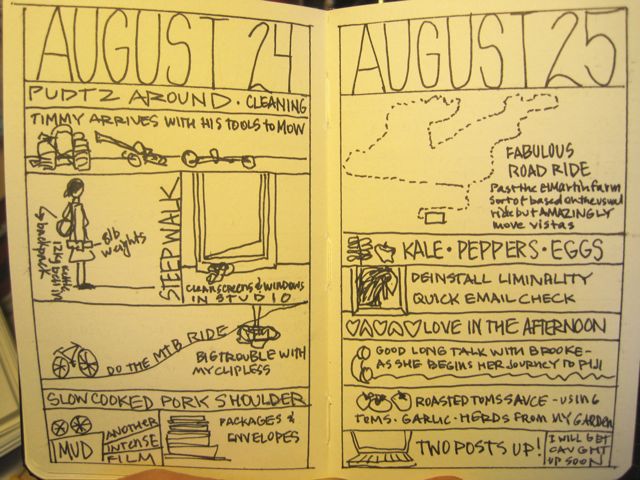 AUGUST 24
PUDTZ AROUND · CLEANING
TIMMY ARRIVES WITH HIS TOOLS TO MOW
8lb
weights
12kg bell in
backpack
STEEP WALK
CLEAN SCREENS & WINDOWS
IN STUDIO
DO THE MTB RIDE
BIG TROUBLE WITH
MY CLIPLESS
SLOW COOKED PORK SHOULDER
MUD
ANOTHER
INTENSE
FILM
PACKAGES &
ENVELOPES
AUGUST 25
FABULOUS
ROAD RIDE
Past the El Martin farm
sort of based on the usual
ride but AMAZINGLY
more vistas
KALE · PEPPERS · EGGS
DEINSTALL LIMINALITY
QUICK EMAIL CHECK
LOVE IN THE AFTERNOON
GOOD LONG TALK WITH BROOKE-
AS SHE BEGINS HER JOURNEY TO FIJI
ROASTED TOMS SAUCE - USING
TOMS · GARLIC · HERBS FROM MY GARDEN
TWO POSTS UP!
I WILL GET
CAUGHT
UP SOON